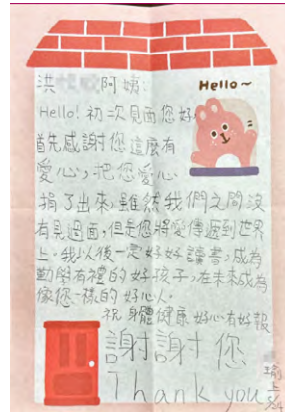 洪 阿姨：
Hello~
Hello! 初次見面您好!
首先感謝您這麼有
愛心，把您愛心
捐了出來，雖然我們之間沒
有見過面，但是您將愛傳遞到世界
上。我以後一定好好讀書，成為
勤學有禮的好孩子，在未來成為
像您一樣的好心人。
祝 身體健康 好心有好報
謝謝您
Thank you
瑜上